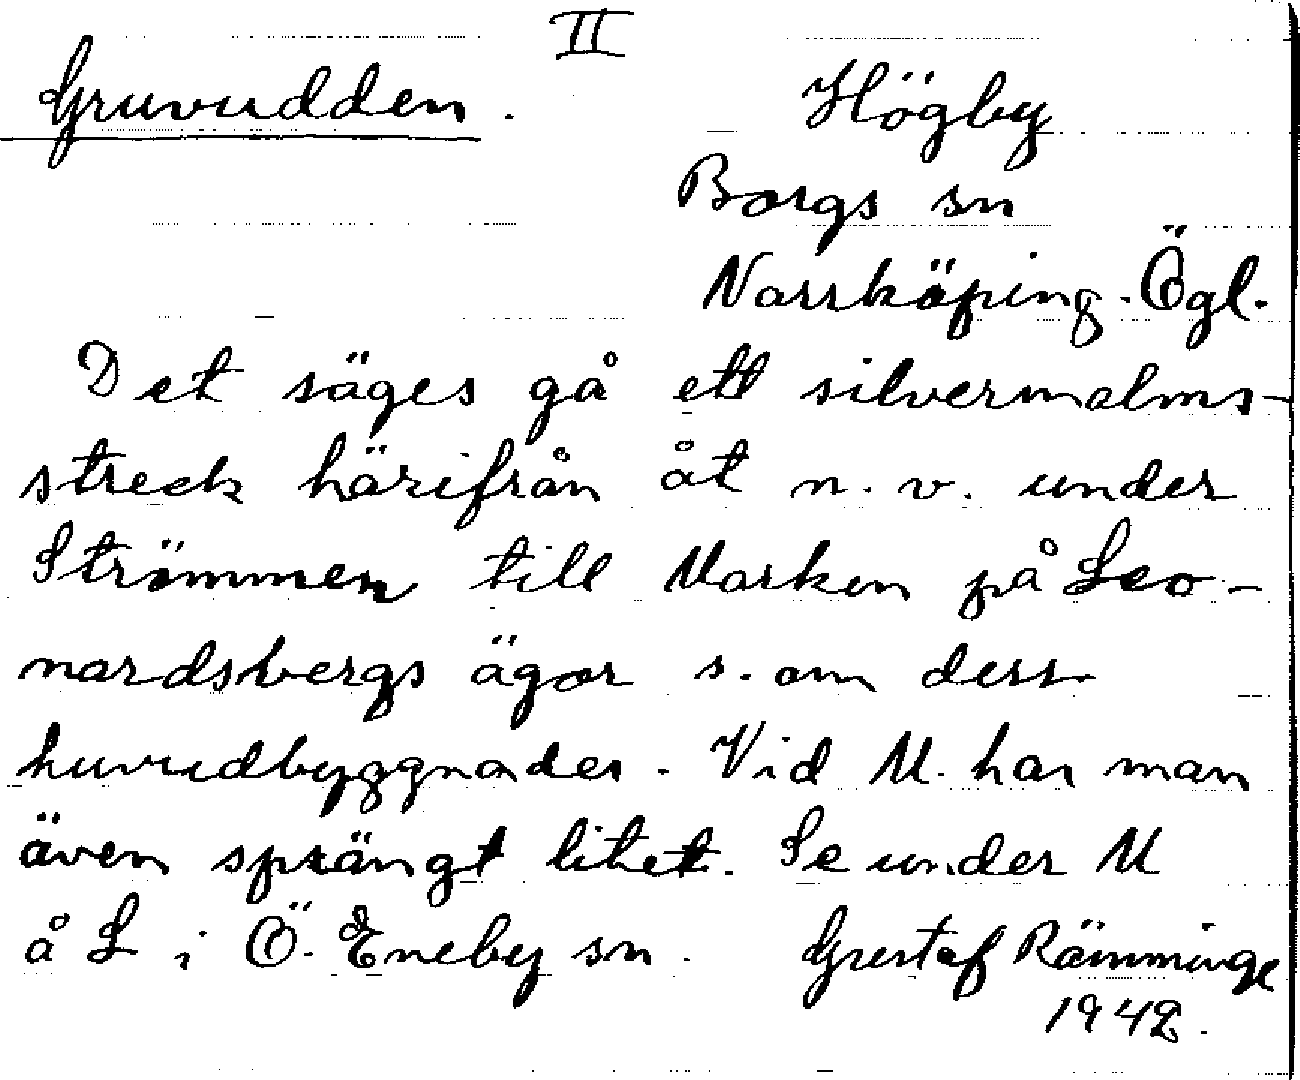 II
Gruvudden.
Högby
Borgs sn
Norrköping. Ögl.
Det säges gå ett silvermalms-
streck härifrån åt n.v. under
Strömmen till Marken på Leo-
nardsbergs ägor s. om dess
huvudbyggnader. Vid M. har man
även sprängt litet. Se under M
å L i Ö. Eneby sn. Gustaf Rämminge
1942.